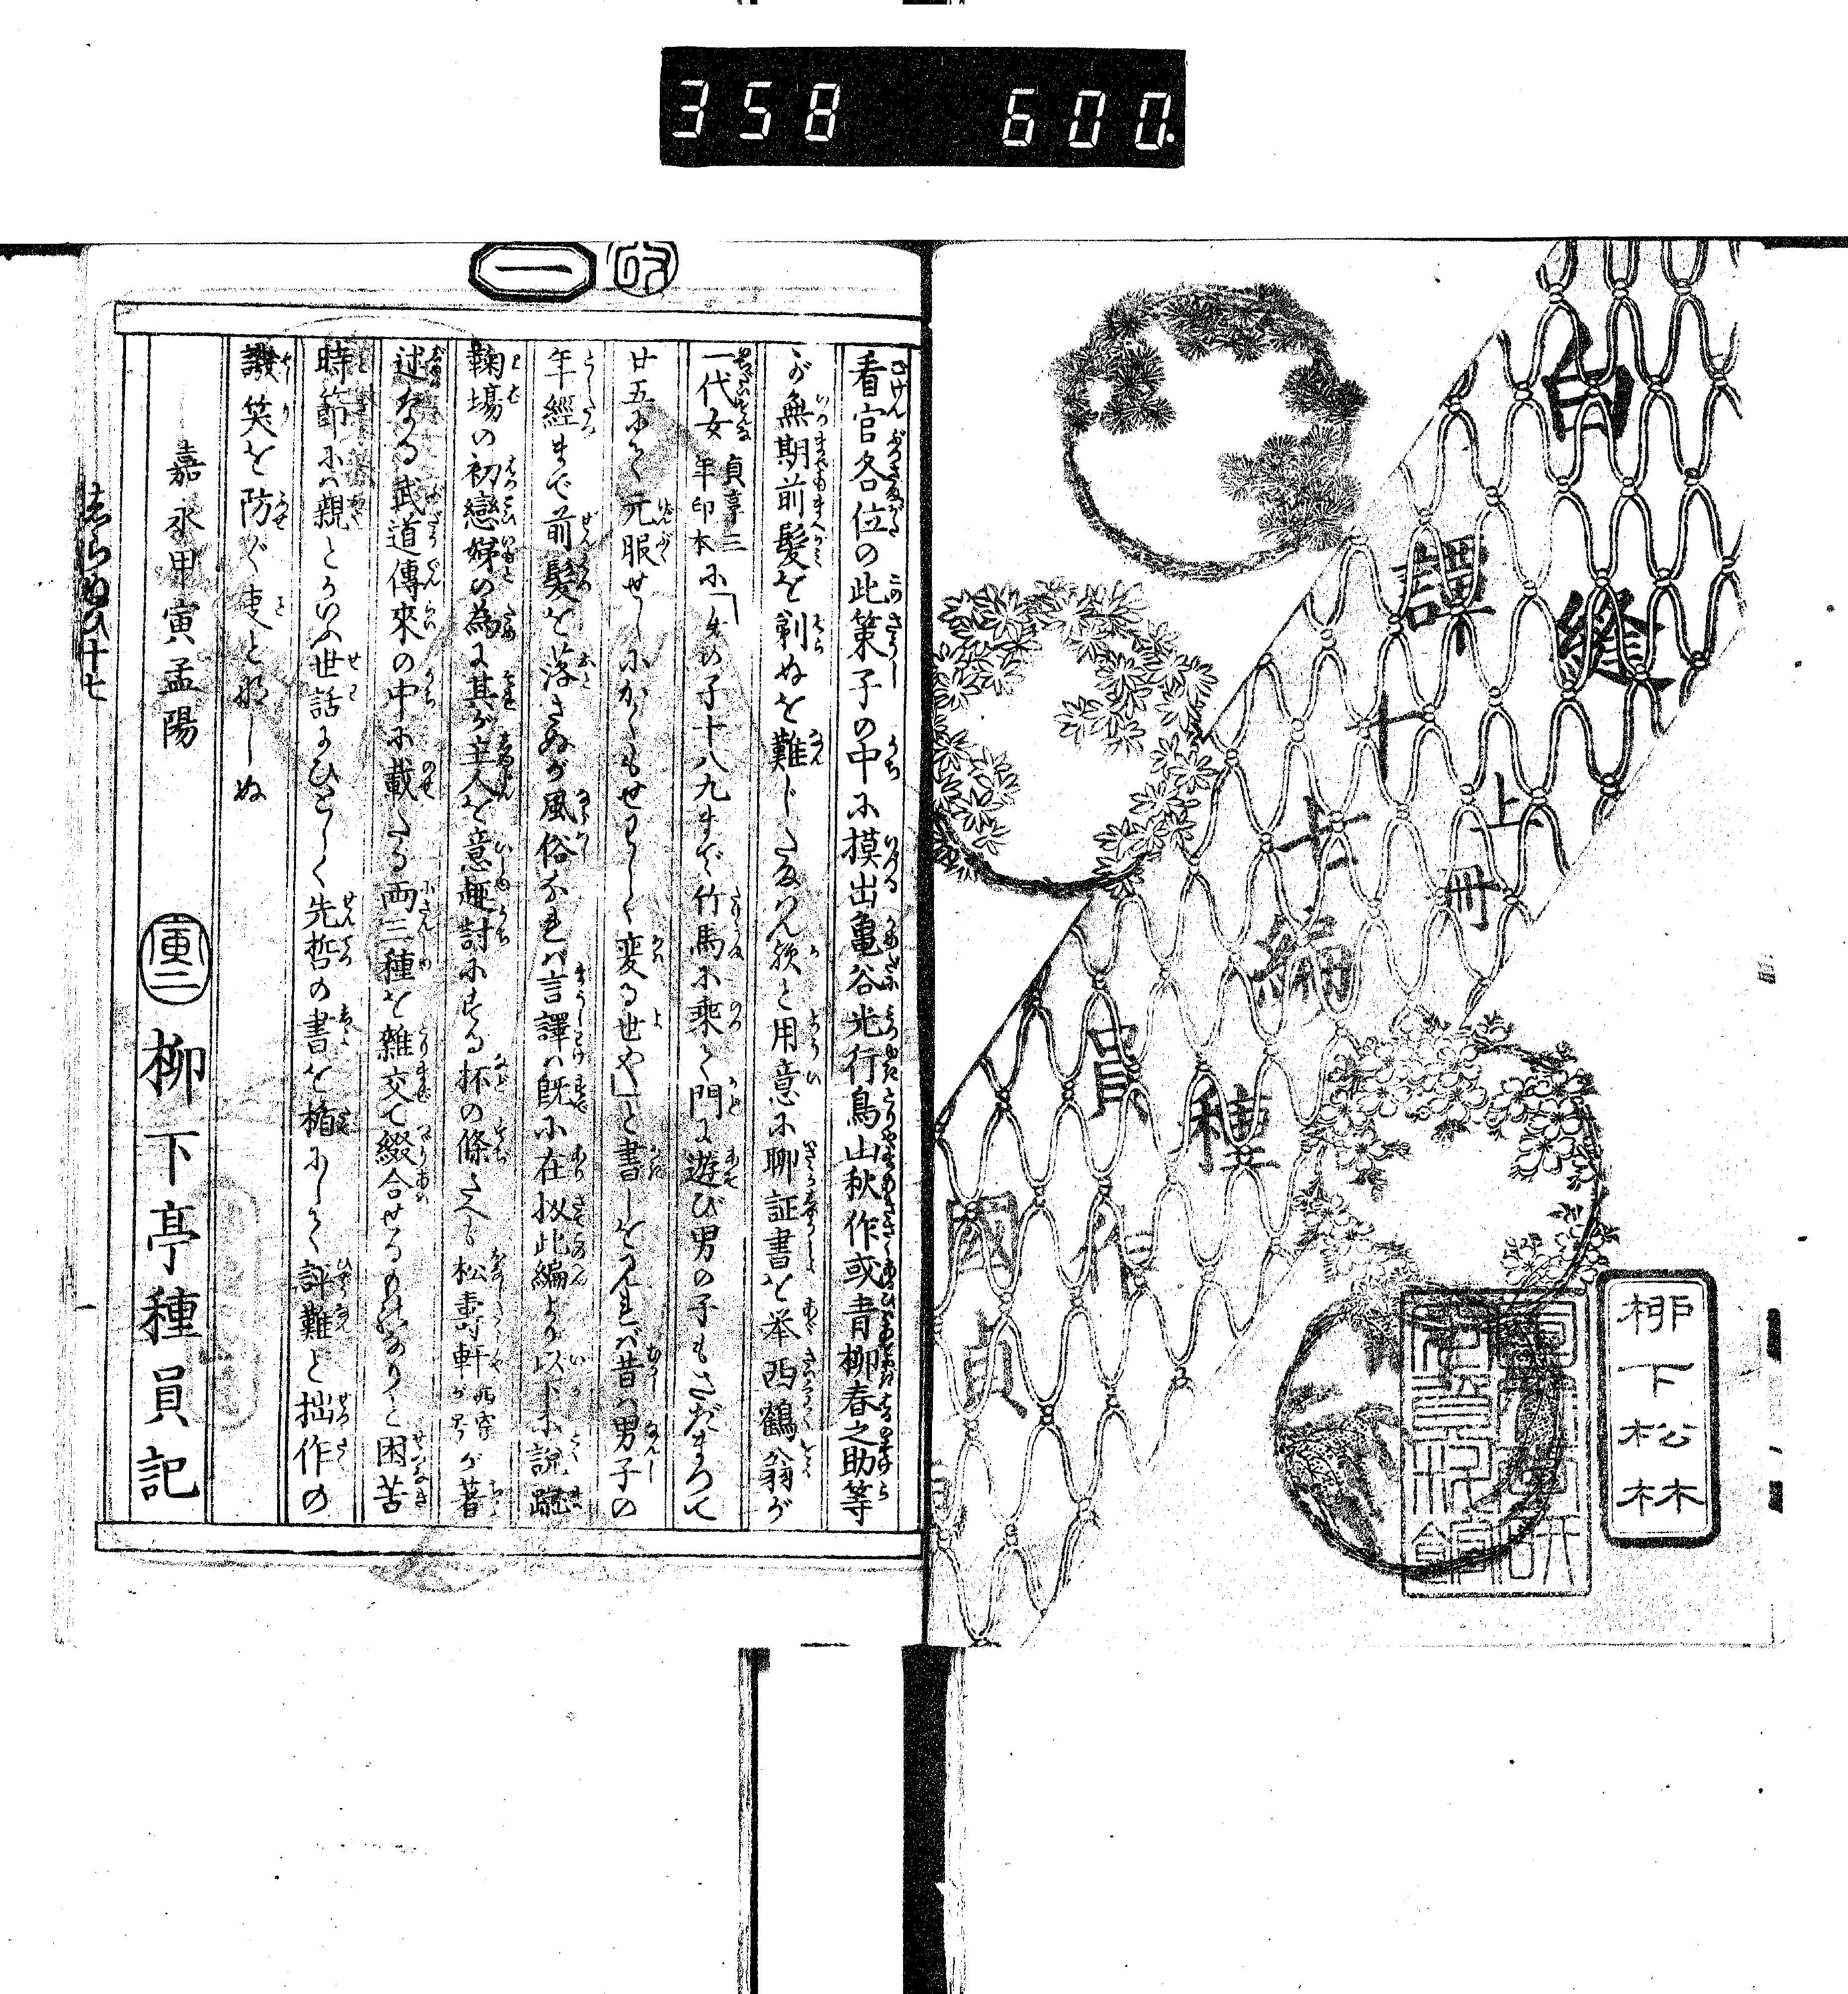 358 600.
白縫
譚
十七編
上冊
種員作
國貞画
柳下
松林
一
看官各位の此策子の中に摸出亀谷光行鳥山秋作或青柳春之助等
が無期前髪を剃ぬを難じ
用意に聊証書を挙西鶴翁が
一代女 貞享三年印本 に「女の子十八九まで竹馬に乗て門に遊び男の子もさだまつて
廿五にて元服せしにかくもせわしく変る世や」と書しを見れば昔は男子の
年經まで前髪を落さぬが風俗なれば言譯は既に在扨此編より以下に説
鞠場の初戀娣の為に其が主人を意趣討にする抔の條
松壽軒 が著
述なる武道傳來の中に載たる両三種を雑交て綴合せるものなりと困苦
時節には親とかいふ世話にひとしく先哲の書を楯にして評難と拙作の
譏笑を防ぐ事となしぬ
嘉永甲寅孟陽
柳下亭種員記
志らぬひ十七